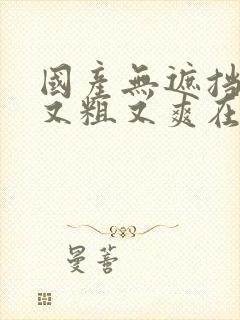 國產無遮挡
又粗又爽在
曼薈